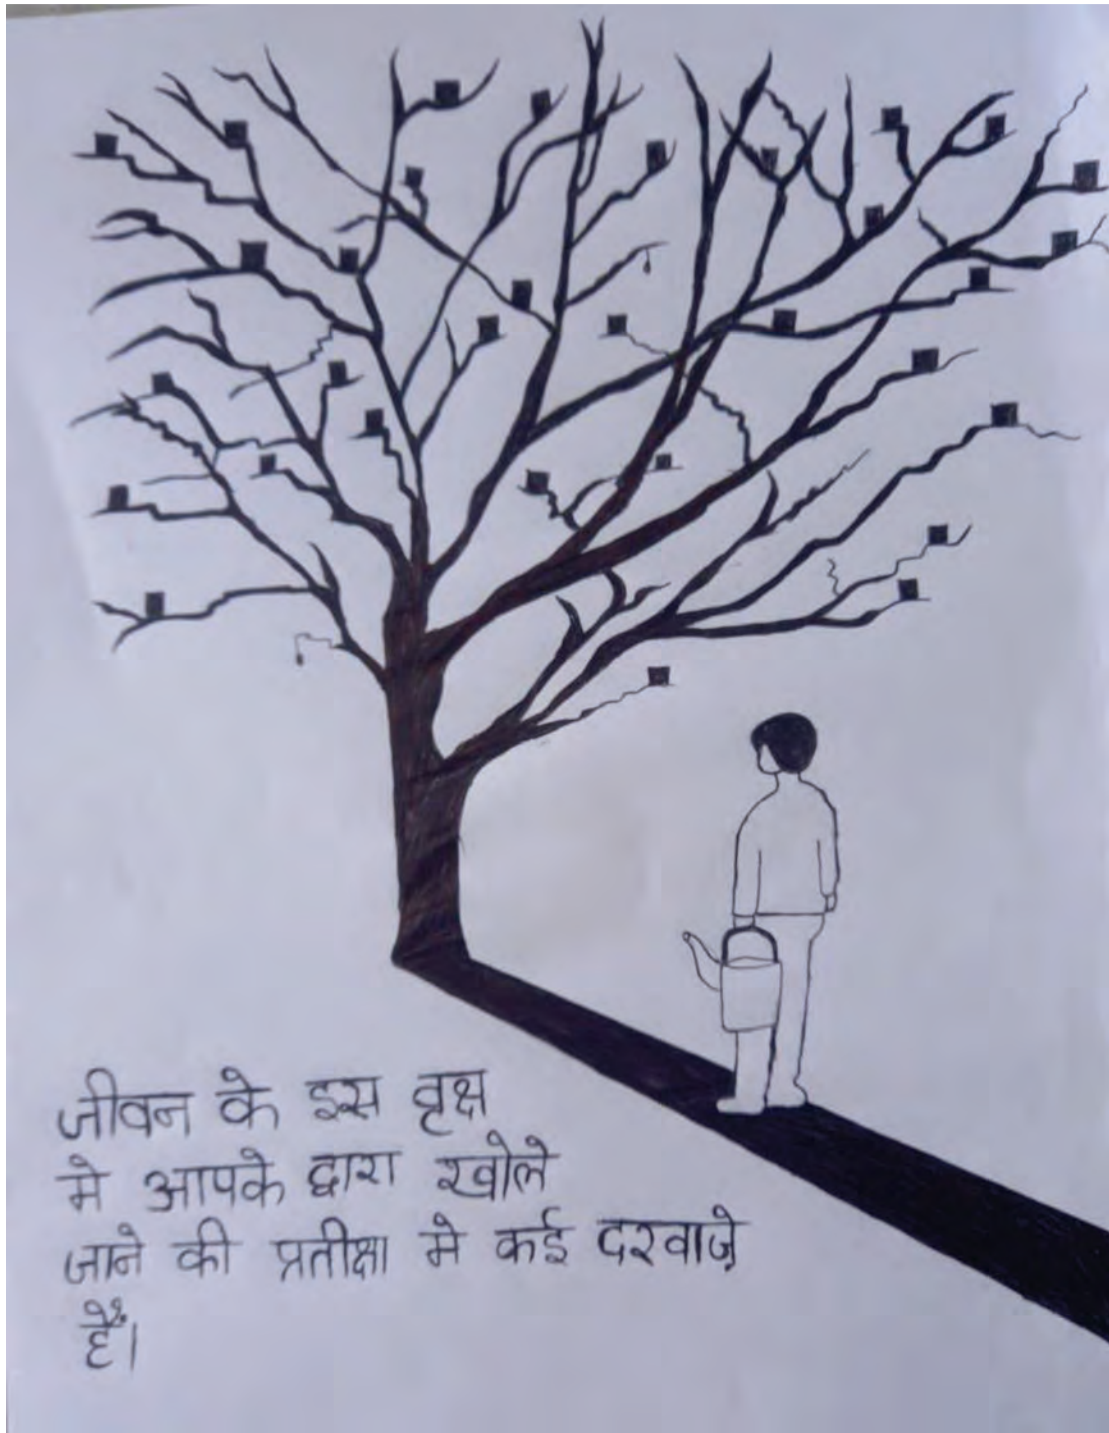 जीवन के इस वृक्ष
मे आपके द्वारा खोले
जाने की प्रतीक्षा मे कई दरवाज़े
हैं।